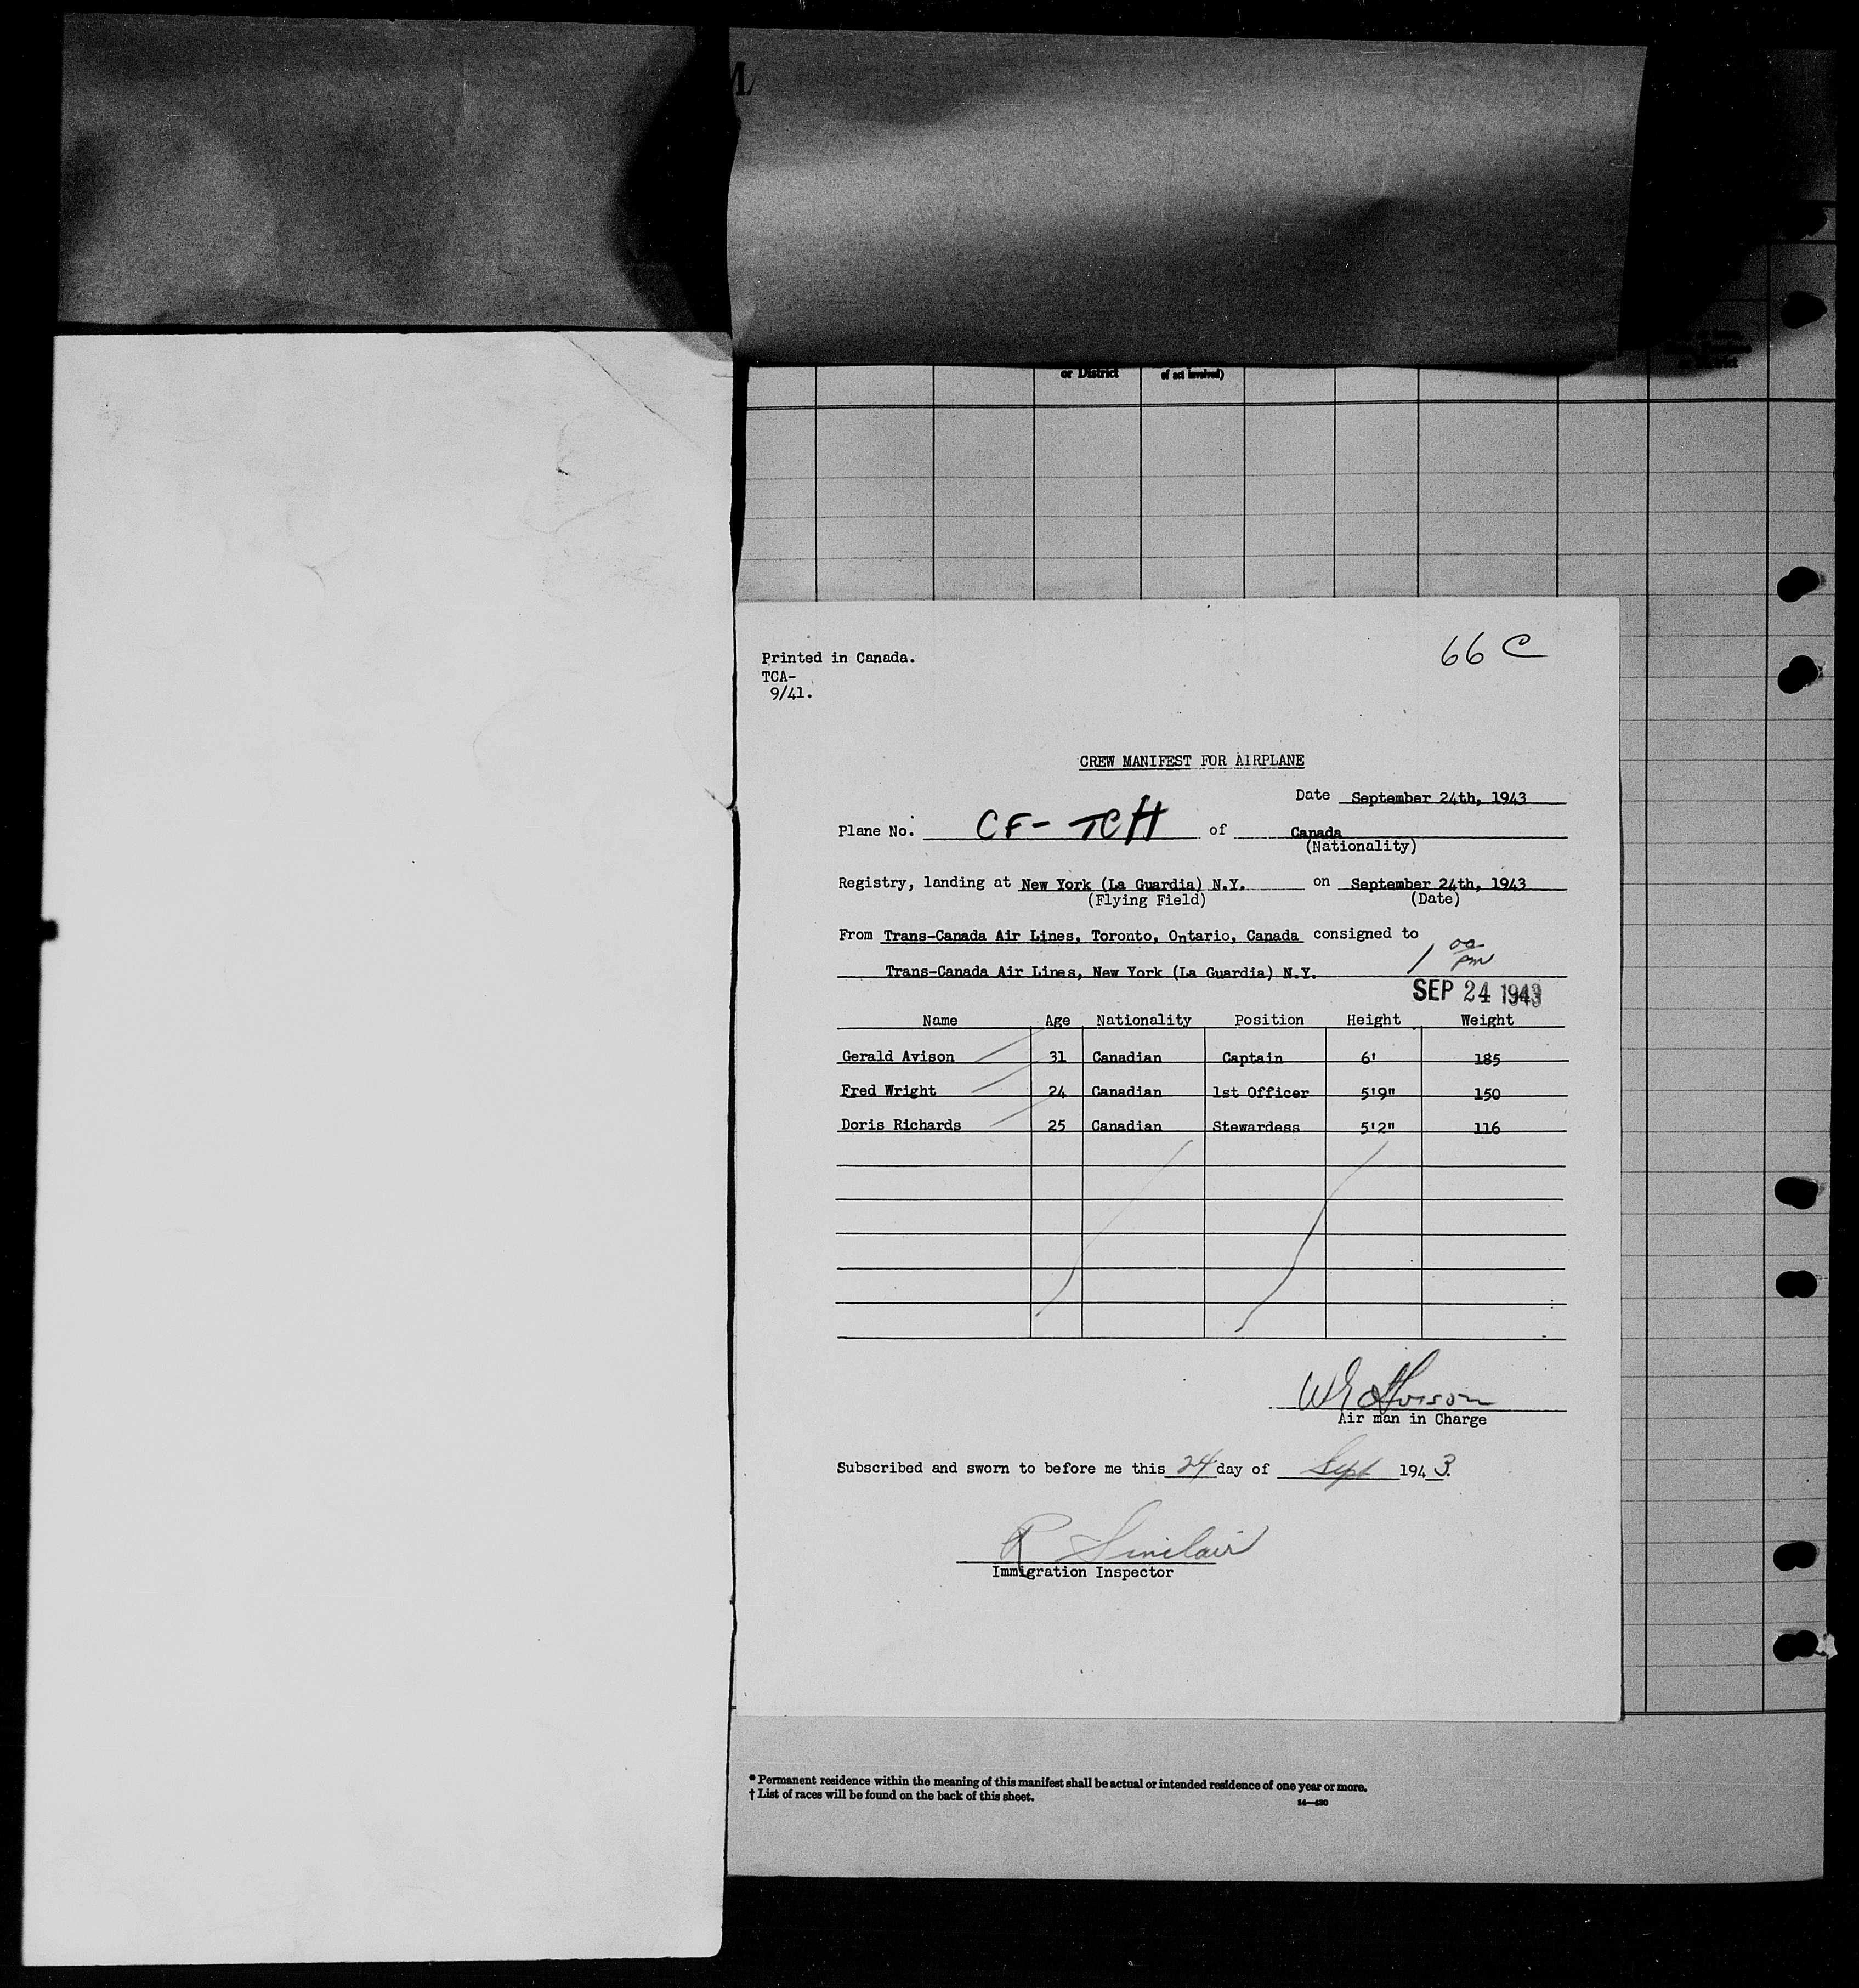 or District of act involved)
66 C
Printed in Canada.
TCA-
9/41.
CREW MANIFEST FOR AIRPLANE
Date September 24th, 1943
Plane No. CF- TCH of Canada
(Nationality)
Registry, landing at New York (La Guardia) N.Y. on September 24th, 1943
(Flying Field) (Date)
From Trans-Canada Air Lines, Toronto, Ontario, Canada consigned to
Trans-Canada Air Lines, New York (La Guardia) N.Y. 1 00 pm
SEP 24 1943
Name Age Nationality Position Height Weight
Gerald Avison 31 Canadian Captain 6' 185
Fred Wright 24 Canadian 1st Officer 5'9" 150
Doris Richards 25 Canadian Stewardess 5'2" 116
WG Avison
Air man in Charge
Subscribed and sworn to before me this 24 day of Sept 1943.
R Sinclair
Immigration Inspector
* Permanent residence within the meaning of this manifest shall be actual or intended residence of one year or more.
† List of races will be found on the back of this sheet.